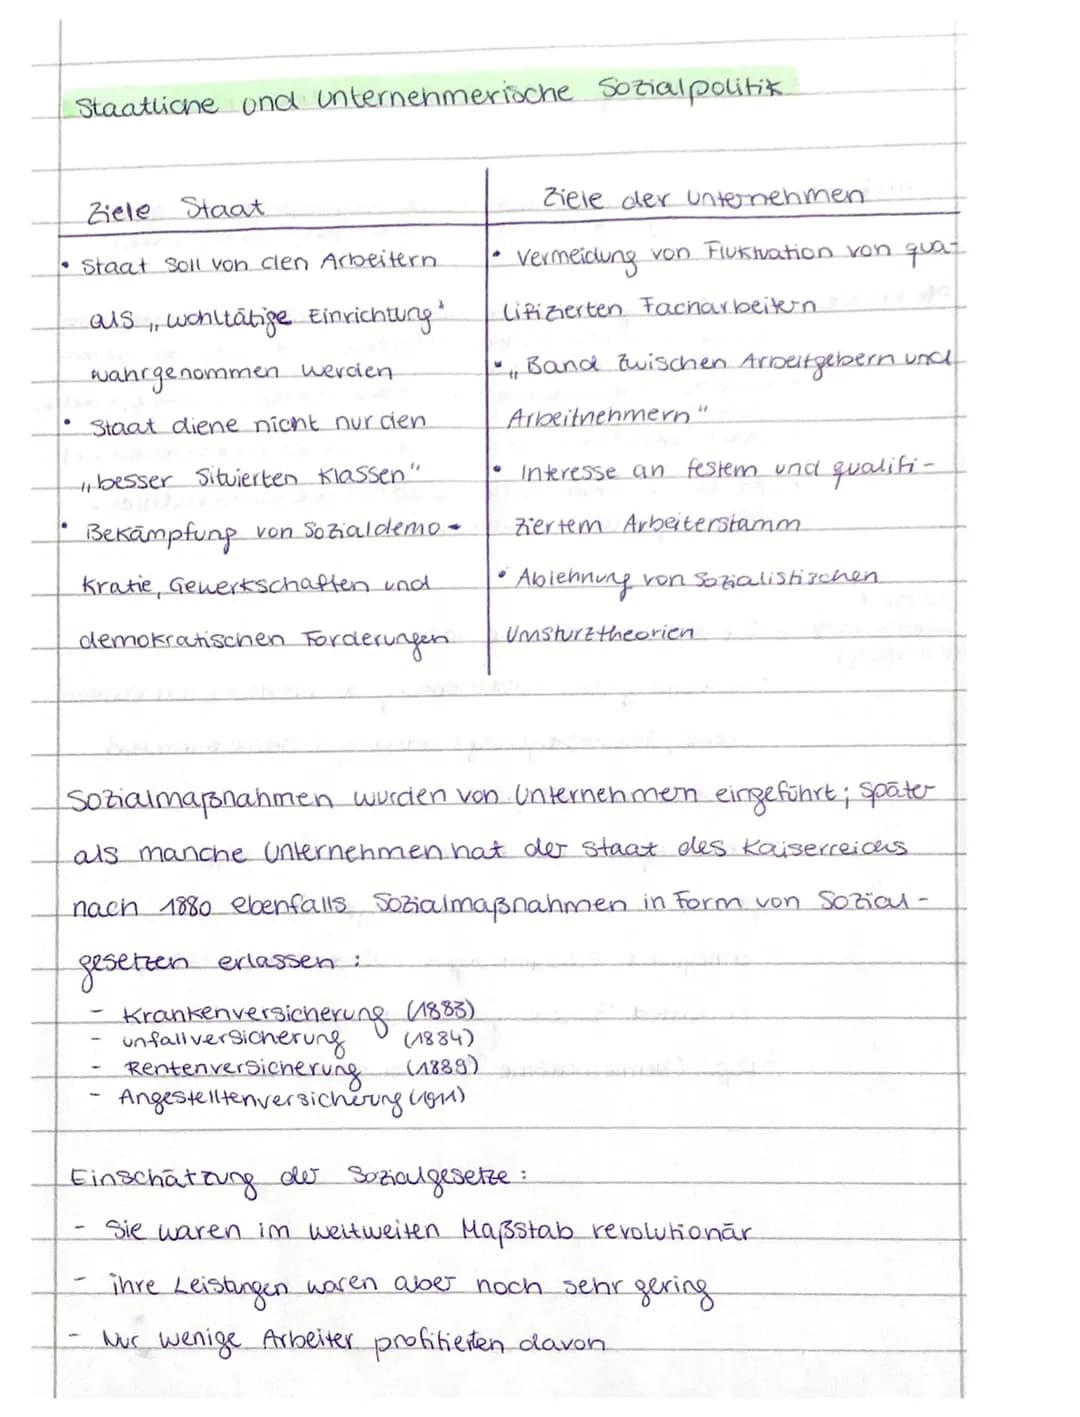 Staatliche und unternehmerische Sozialpolitik
Ziele Staat
• Staat soll von den Arbeitern
als „wohltätige Einrichtung'
wahrgenommen werden
• Staat diene nicht nur den
„besser Situierten Klassen"
• Bekämpfung von Sozialdemo-
kratie, Gewerkschaften und
demokratischen Forderungen
Ziele der Unternehmen
• Vermeidung von Fluktuation von qua-
lifizierten Facharbeitern
• „Band zwischen Arbeitgebern und
Arbeitnehmern"
• Interesse an festem und qualifi-
ziertem Arbeiterstamm
• Ablehnung von sozialistischen
Umsturztheorien
Sozialmaßnahmen wurden von Unternehmen eingeführt; später
als manche Unternehmen hat der Staat des Kaiserreichs
nach 1880 ebenfalls Sozialmaßnahmen in Form von Sozial-
gesetzen erlassen:
- Krankenversicherung (1883)
- unfallversicherung (1884)
- Rentenversicherung (1889)
- Angestelltenversicherung (1911)
Einschätzung der Sozialgesetze:
- Sie waren im weltweiten Maßstab revolutionär
- ihre Leistungen waren aber noch sehr gering
- Nur wenige Arbeiter profitierten davon